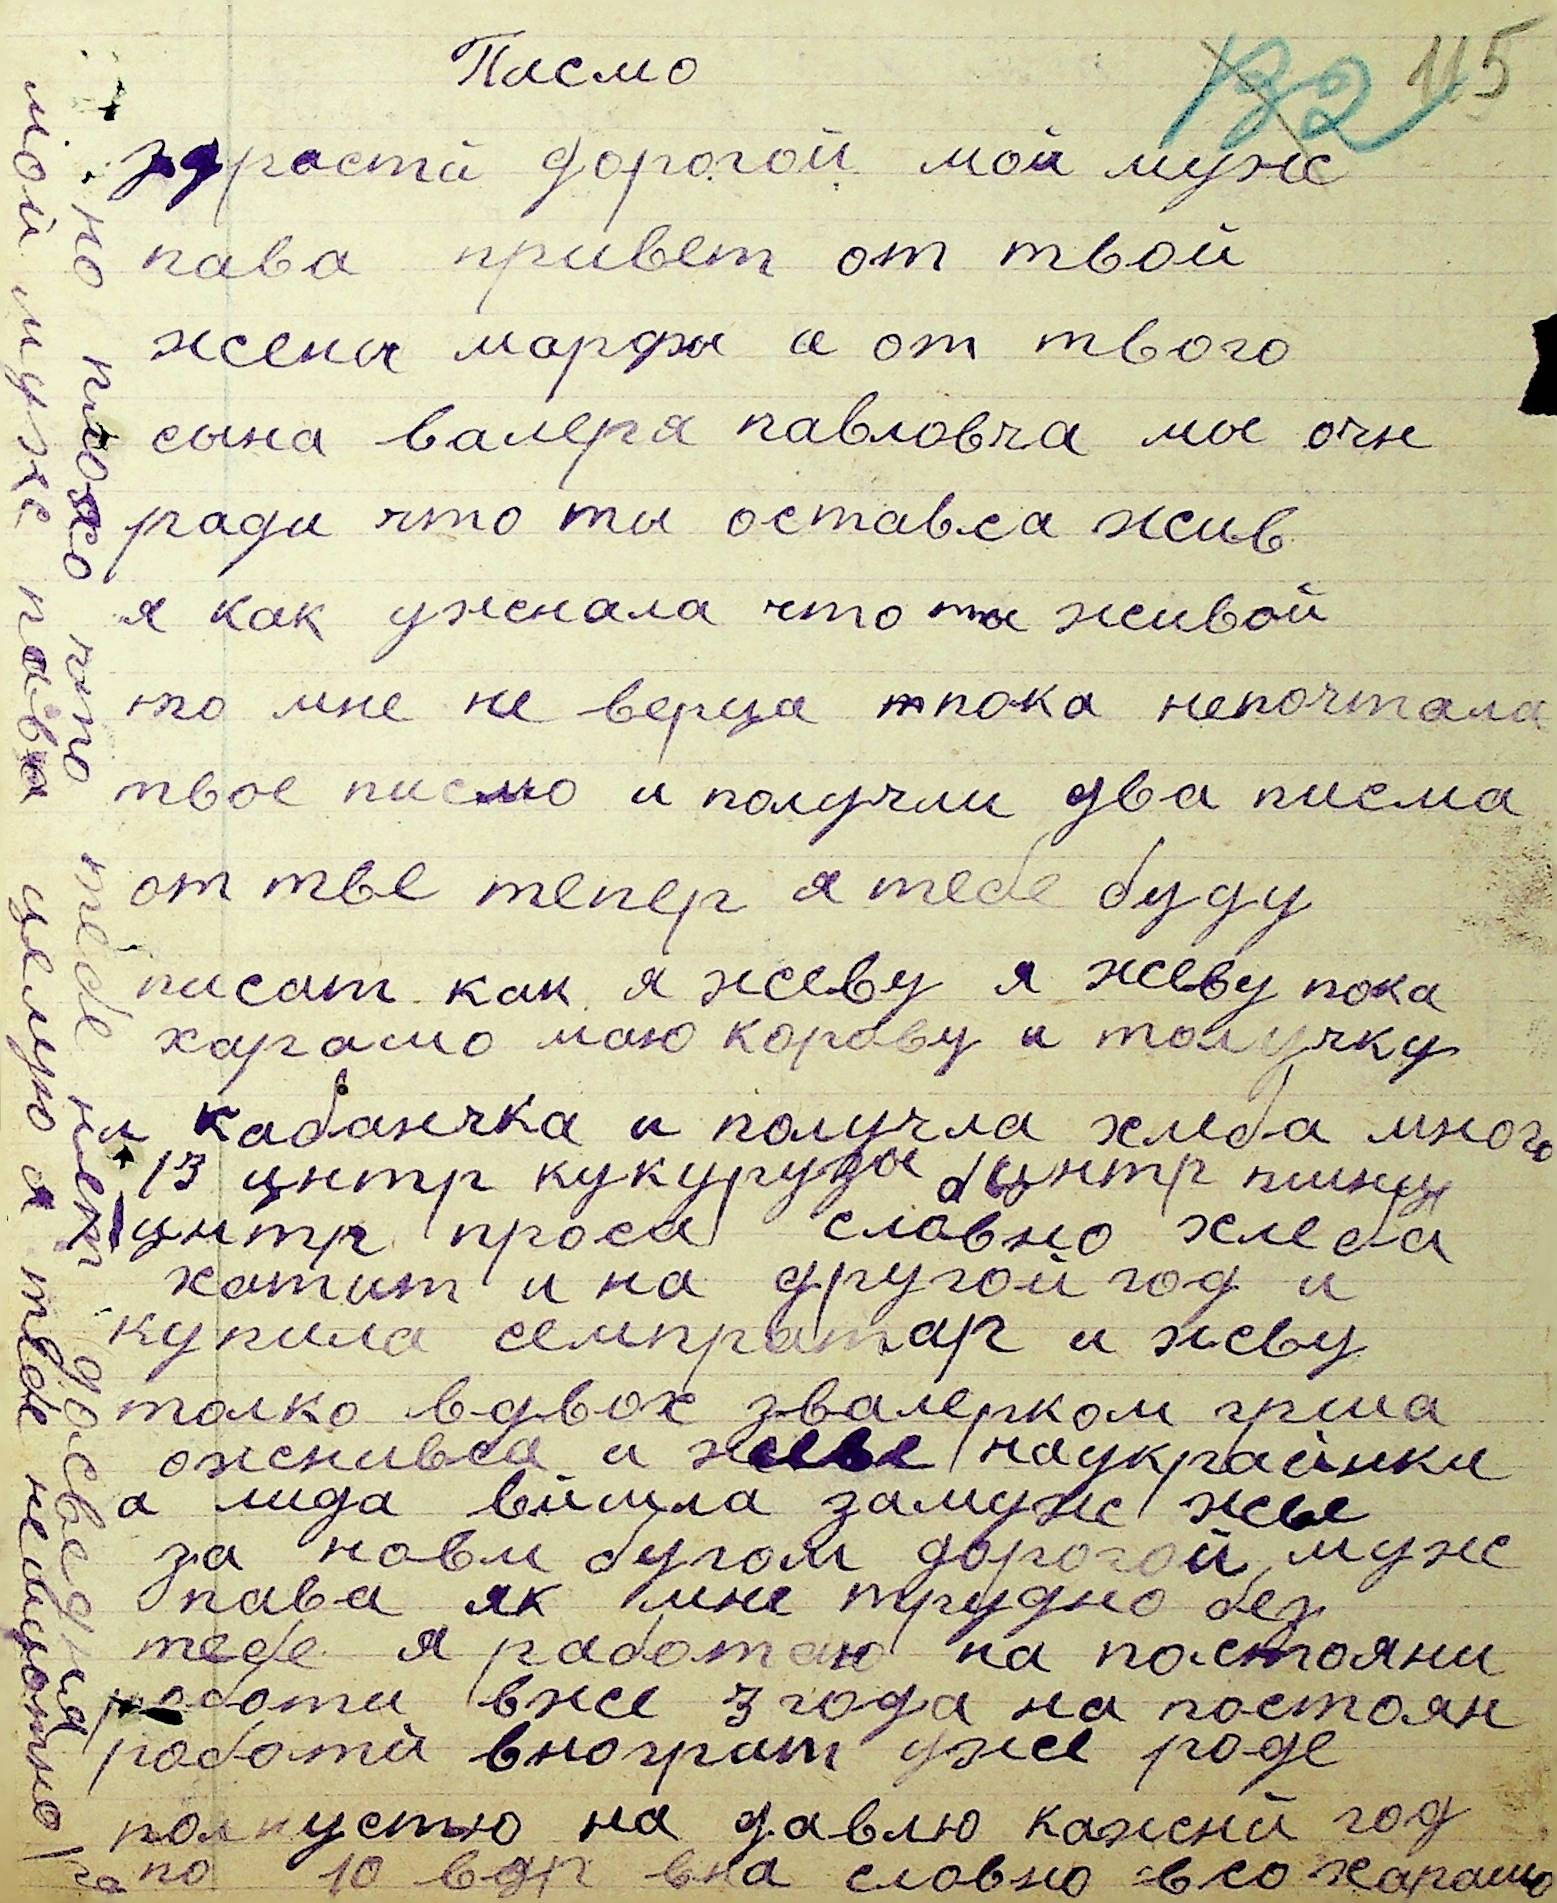 Писмо
115
132
здрастй дорогой мой муж
пава привет от твой
жены марфы и от твого
сына валеря павловча мы очн
ради что ты оставса жив
я как ужнала что ты живой
то мне не верца тпока непочтала
твое писмо и получли два писма
от тве тепер я тебе буду
писат как я жеву я жеву пока
харашо маю корову и толучку
и кабанчка и получла хлеба много
13 цнтр кукурузы 6 цнтр пшнц
1 цнтр проса словно хлеба
хатит и на другой год и
купила семпратар и жеву
толко вдвох звалерком гриша
ожнивса и жеве наукраинки
а лида вйшла замуж жве
за новм бугом дорогой муж
пава як мне трудно без
тебе я работаю на постояни
работи вже 3 года на постоян
работй вноград уже роде
полнустю на давлю кажнй год
по 10 вдр вна словно всо харашо
но плохо што тебе нет досведния
мой муж пава целую я тебе несщотно